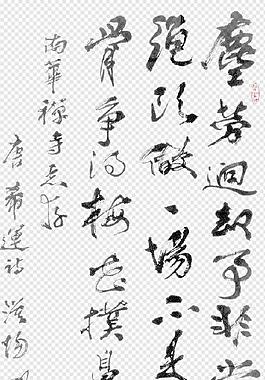 塵勞迥脱事非常
繩頭做一場不是
骨爭得梅花撲鼻
南華禪寺
唐希運詩